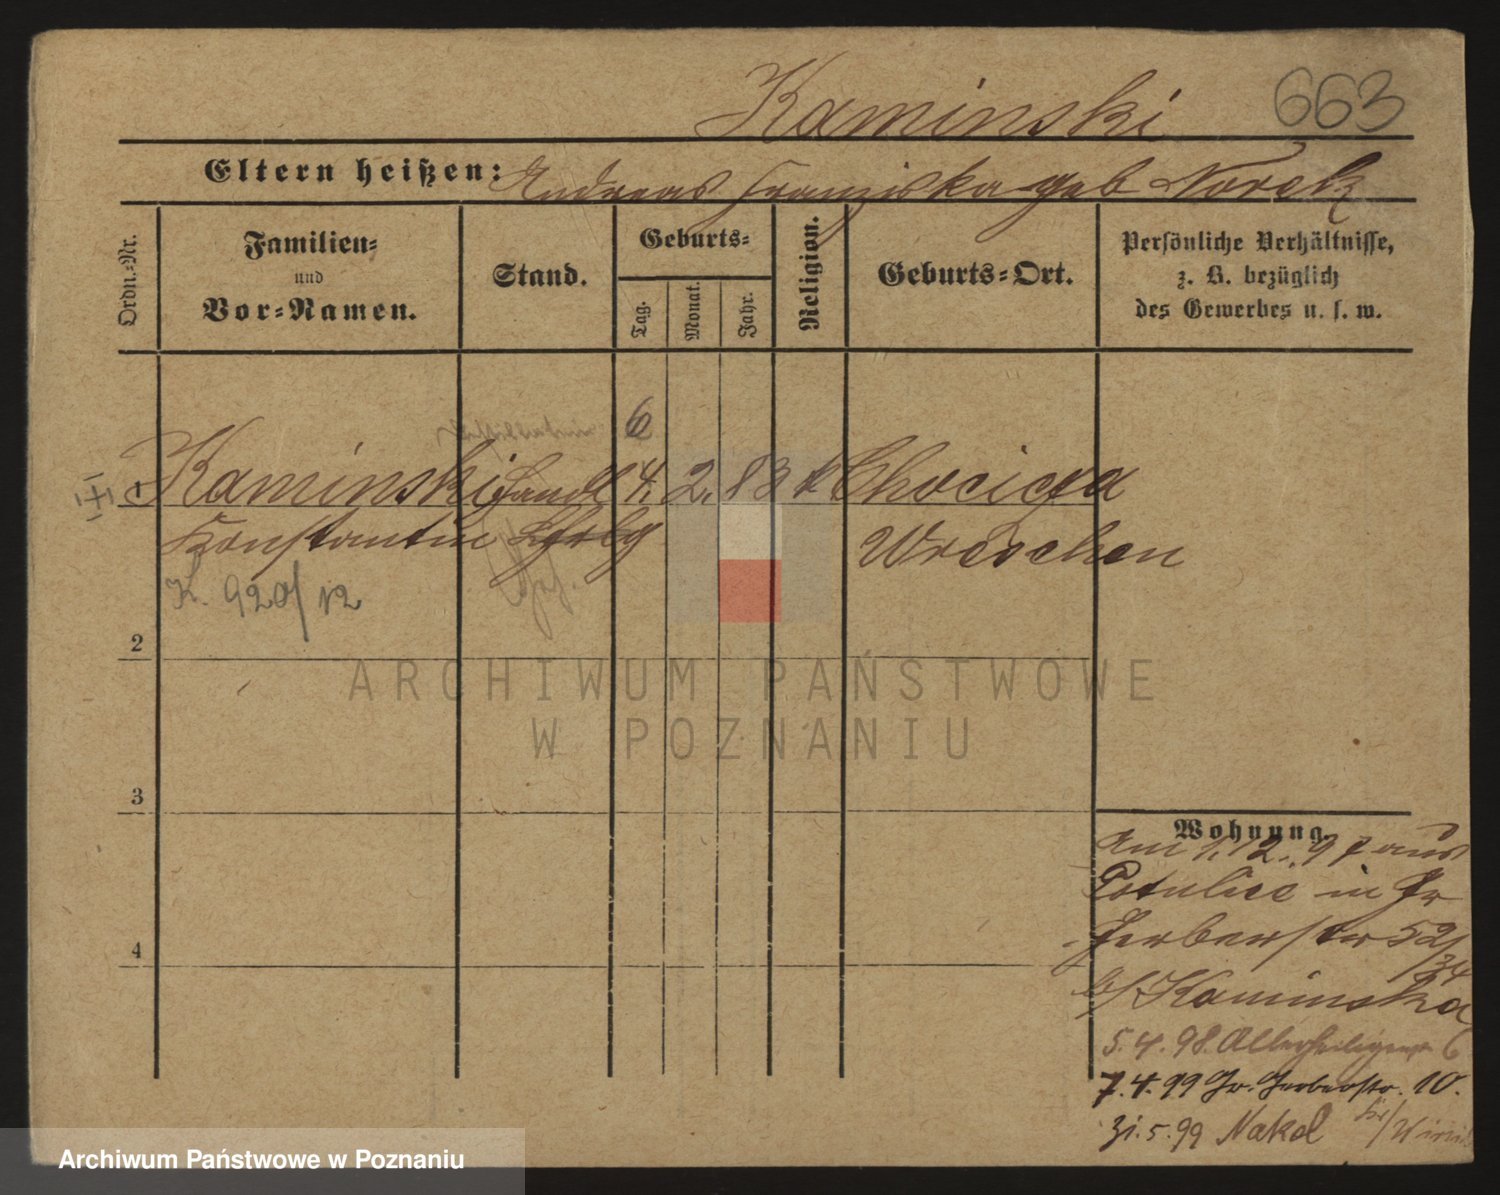 Kaminski 663
Eltern heißen: Andreas Franziska geb Norek
Ordn.=Nr.
Familien=
und
Vor=Namen.
Stand.
Geburts=
Tag.
Monat.
Jahr.
Religion.
Geburts=Ort.
Persönliche Verhältnisse,
z. B. bezüglich
des Gewerbes u. s. w.
6
1 Kaminski 4. 2. 83 k Chocicza
Konstantin Wreschen
K. 920/12
2
ARCHIWUM PAŃSTWOWE
W POZNANIU
3
4
Wohnung.
Am 1.12.97 aus
Potulice in Gr
Gerberstr 52/
34
b/Kaminska
5.4.98. Allerheiligenstr 6
7.4.99 Gr. Gerberstr. 10.
31.5.99 Nakel
Archiwum Państwowe w Poznaniu